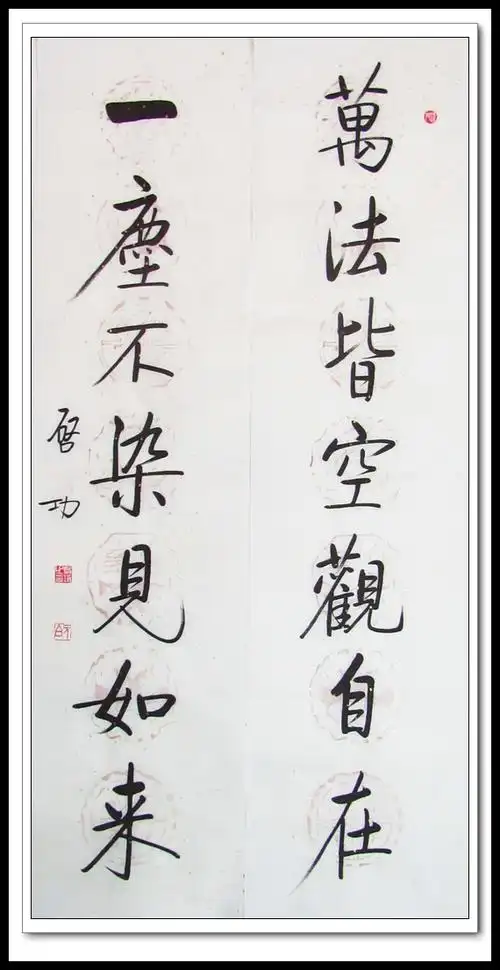 萬法皆空觀自在
一塵不染見如来
啓功